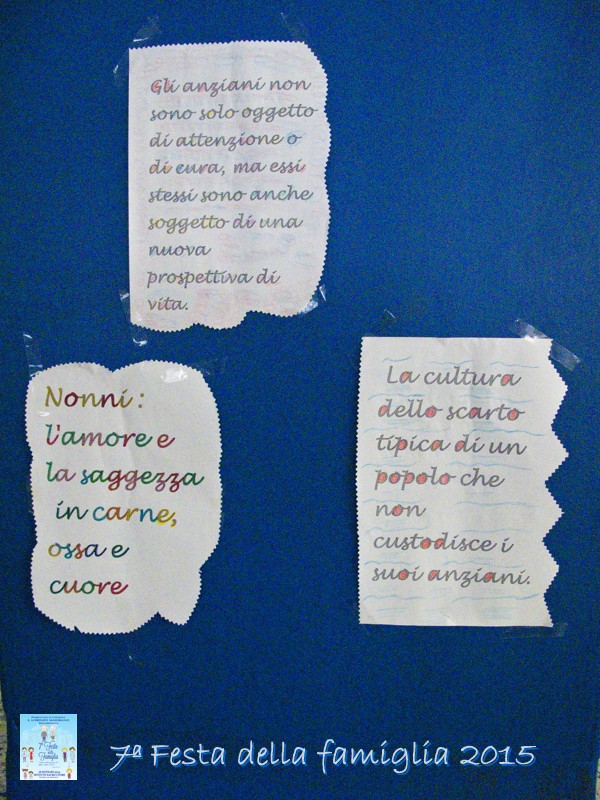 Gli anziani non
sono solo oggetto
di attenzione o
di cura, ma essi
stessi sono anche
soggetto di una
nuova
prospettiva di
vita.
Nonni :
l'amore e
la saggezza
in carne,
ossa e
cuore
La cultura
dello scarto
tipica di un
popolo che
non
custodisce i
suoi anziani.
7ª Festa
della
Famiglia
7ª Festa della famiglia 2015